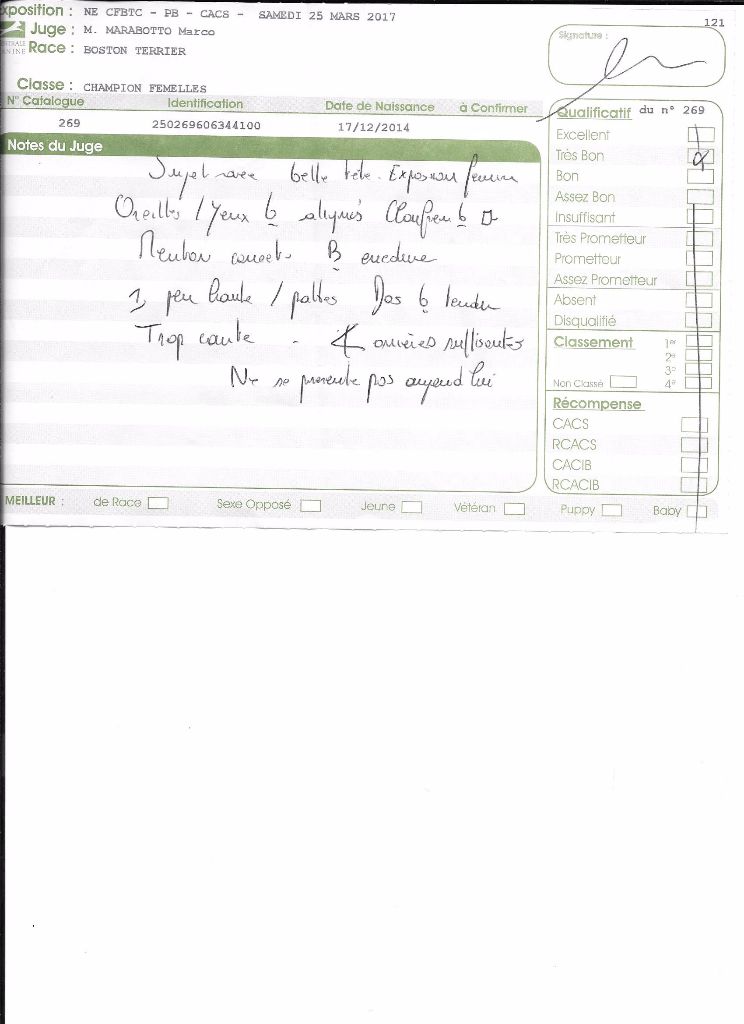 xposition : NE CFBTC - PB - CACS - SAMEDI 25 MARS 2017
121
Juge : M. MARABOTTO Marco
Race : BOSTON TERRIER
Signature :
Classe : CHAMPION FEMELLES
N° Catalogue Identification Date de Naissance à Confirmer
269 250269606344100 17/12/2014
Notes du Juge
Sujet avec belle tête. Expression
Oreilles / Yeux b alignés Chanfrein b
Menton correct. B encolure
1 peu haute / pattes Dos b tendu
Trop courte - arrières suffisantes
Ne se presente pas aujourd'hui
Qualificatif du n° 269
Excellent
Très Bon
Bon
Assez Bon
Insuffisant
Très Prometteur
Prometteur
Assez Prometteur
Absent
Disqualifié
Classement 1er
2e
3e
Non Classé 4e
Récompense
CACS
RCACS
CACIB
RCACIB
MEILLEUR : de Race Sexe Opposé Jeune Vétéran Puppy Baby